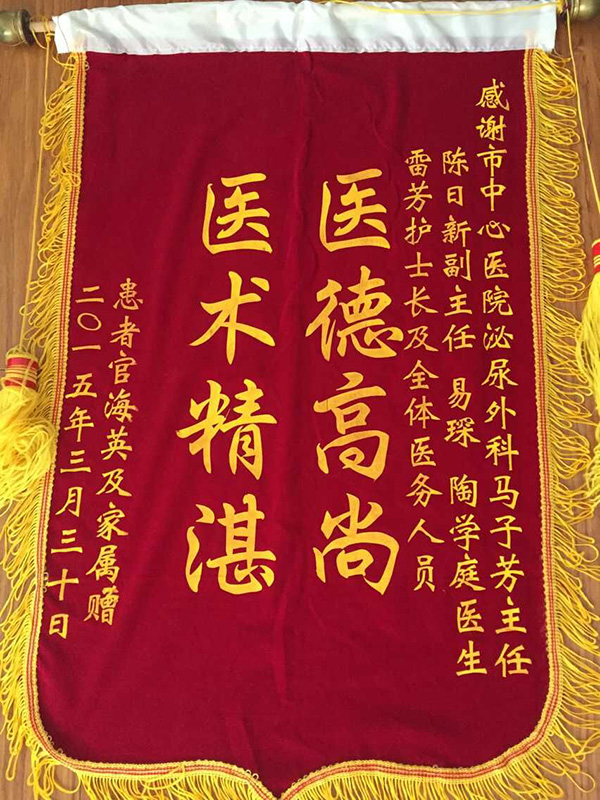 感谢市中心医院泌尿外科马子芳主任
陈日新副主任 易琛 陶学庭医生
雷芳护士长及全体医务人员
医德高尚
医术精湛
患者官海英及家属赠
二〇一五年三月三十日